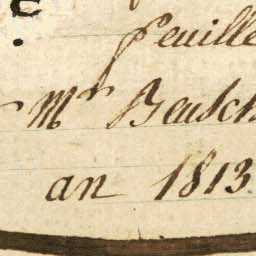 feuille
Mr Beusch
an 1813